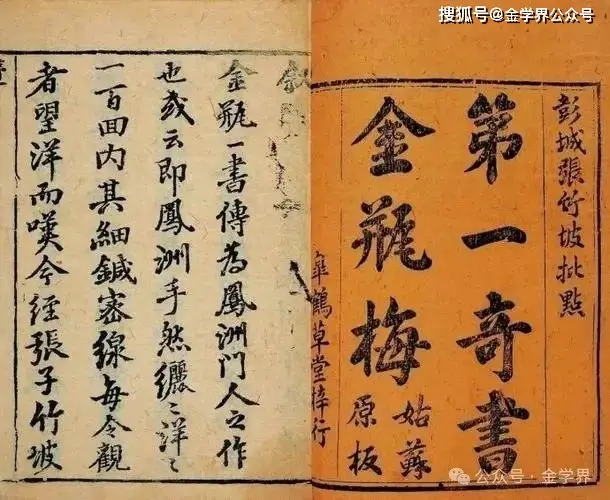 搜狐号@金学界公众号
彭城張竹坡批點
第一奇書
金瓶梅
姑蘇
原板
臯鶴草堂梓行
金瓶一書傳為鳳洲門人之作
也或云即鳳洲手然纚〻洋〻
一百回内其細鍼密線每令觀
者望洋而嘆今經張子竹坡
公众号·金学界